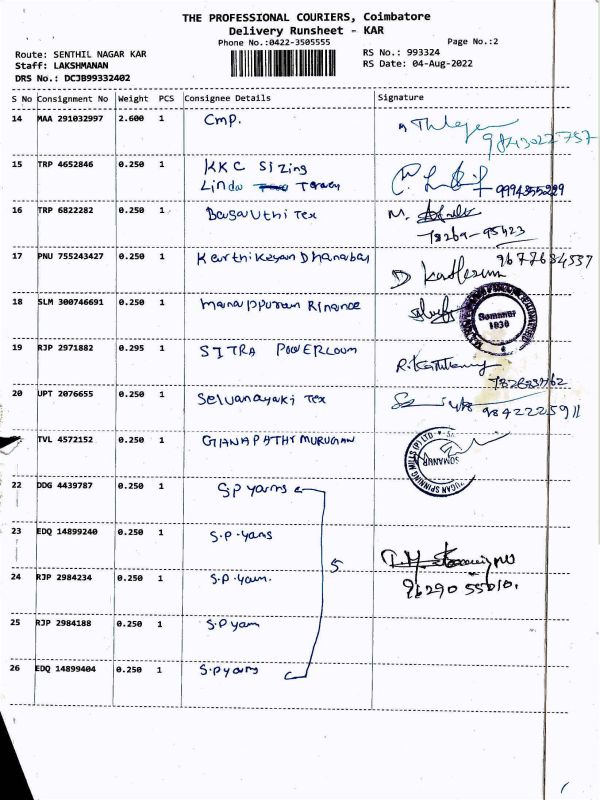 THE PROFESSIONAL COURIERS, Coimbatore
Delivery Runsheet - KAR
Phone No.:0422-3505555
Page No.:2
Route: SENTHIL NAGAR KAR
RS No.: 993324
Staff: LAKSHMANAN
RS Date: 04-Aug-2022
DRS No.: DCJB99332402
S No Consignment No Weight PCS Consignee Details Signature
14 MAA 291032997 2.600 1 Cmp.
9843022757
15 TRP 4652846 0.250 1 KKC Sizing
Linda 9994355229
16 TRP 6822282 0.250 1 BasaUthi Tex M.
78269-95423
17 PNU 755243427 0.250 1 Karthikeyan Dhanabal 9677684537
D
18 SLM 300746691 0.250 1 manappuram Rinance
Somanur
1030
19 RJP 2971882 0.295 1 SITRA POWERLOOM
20 UPT 2076655 0.250 1 Selvanayaki Tex 9842225911
TVL 4572152 0.250 1 GANAPATHY MURUGAN
UGAN SPINNING MILLS (P) LTD
SOMANUR
22 DDG 4439787 0.250 1 S.P yarns
23 EDQ 14899240 0.250 1 S.P.yans
5
24 RJP 2984234 0.250 1 S.P.yarn.
96290 55010.
25 RJP 2984188 0.250 1 S.P yam
26 EDQ 14899404 0.250 1 S.P yarns